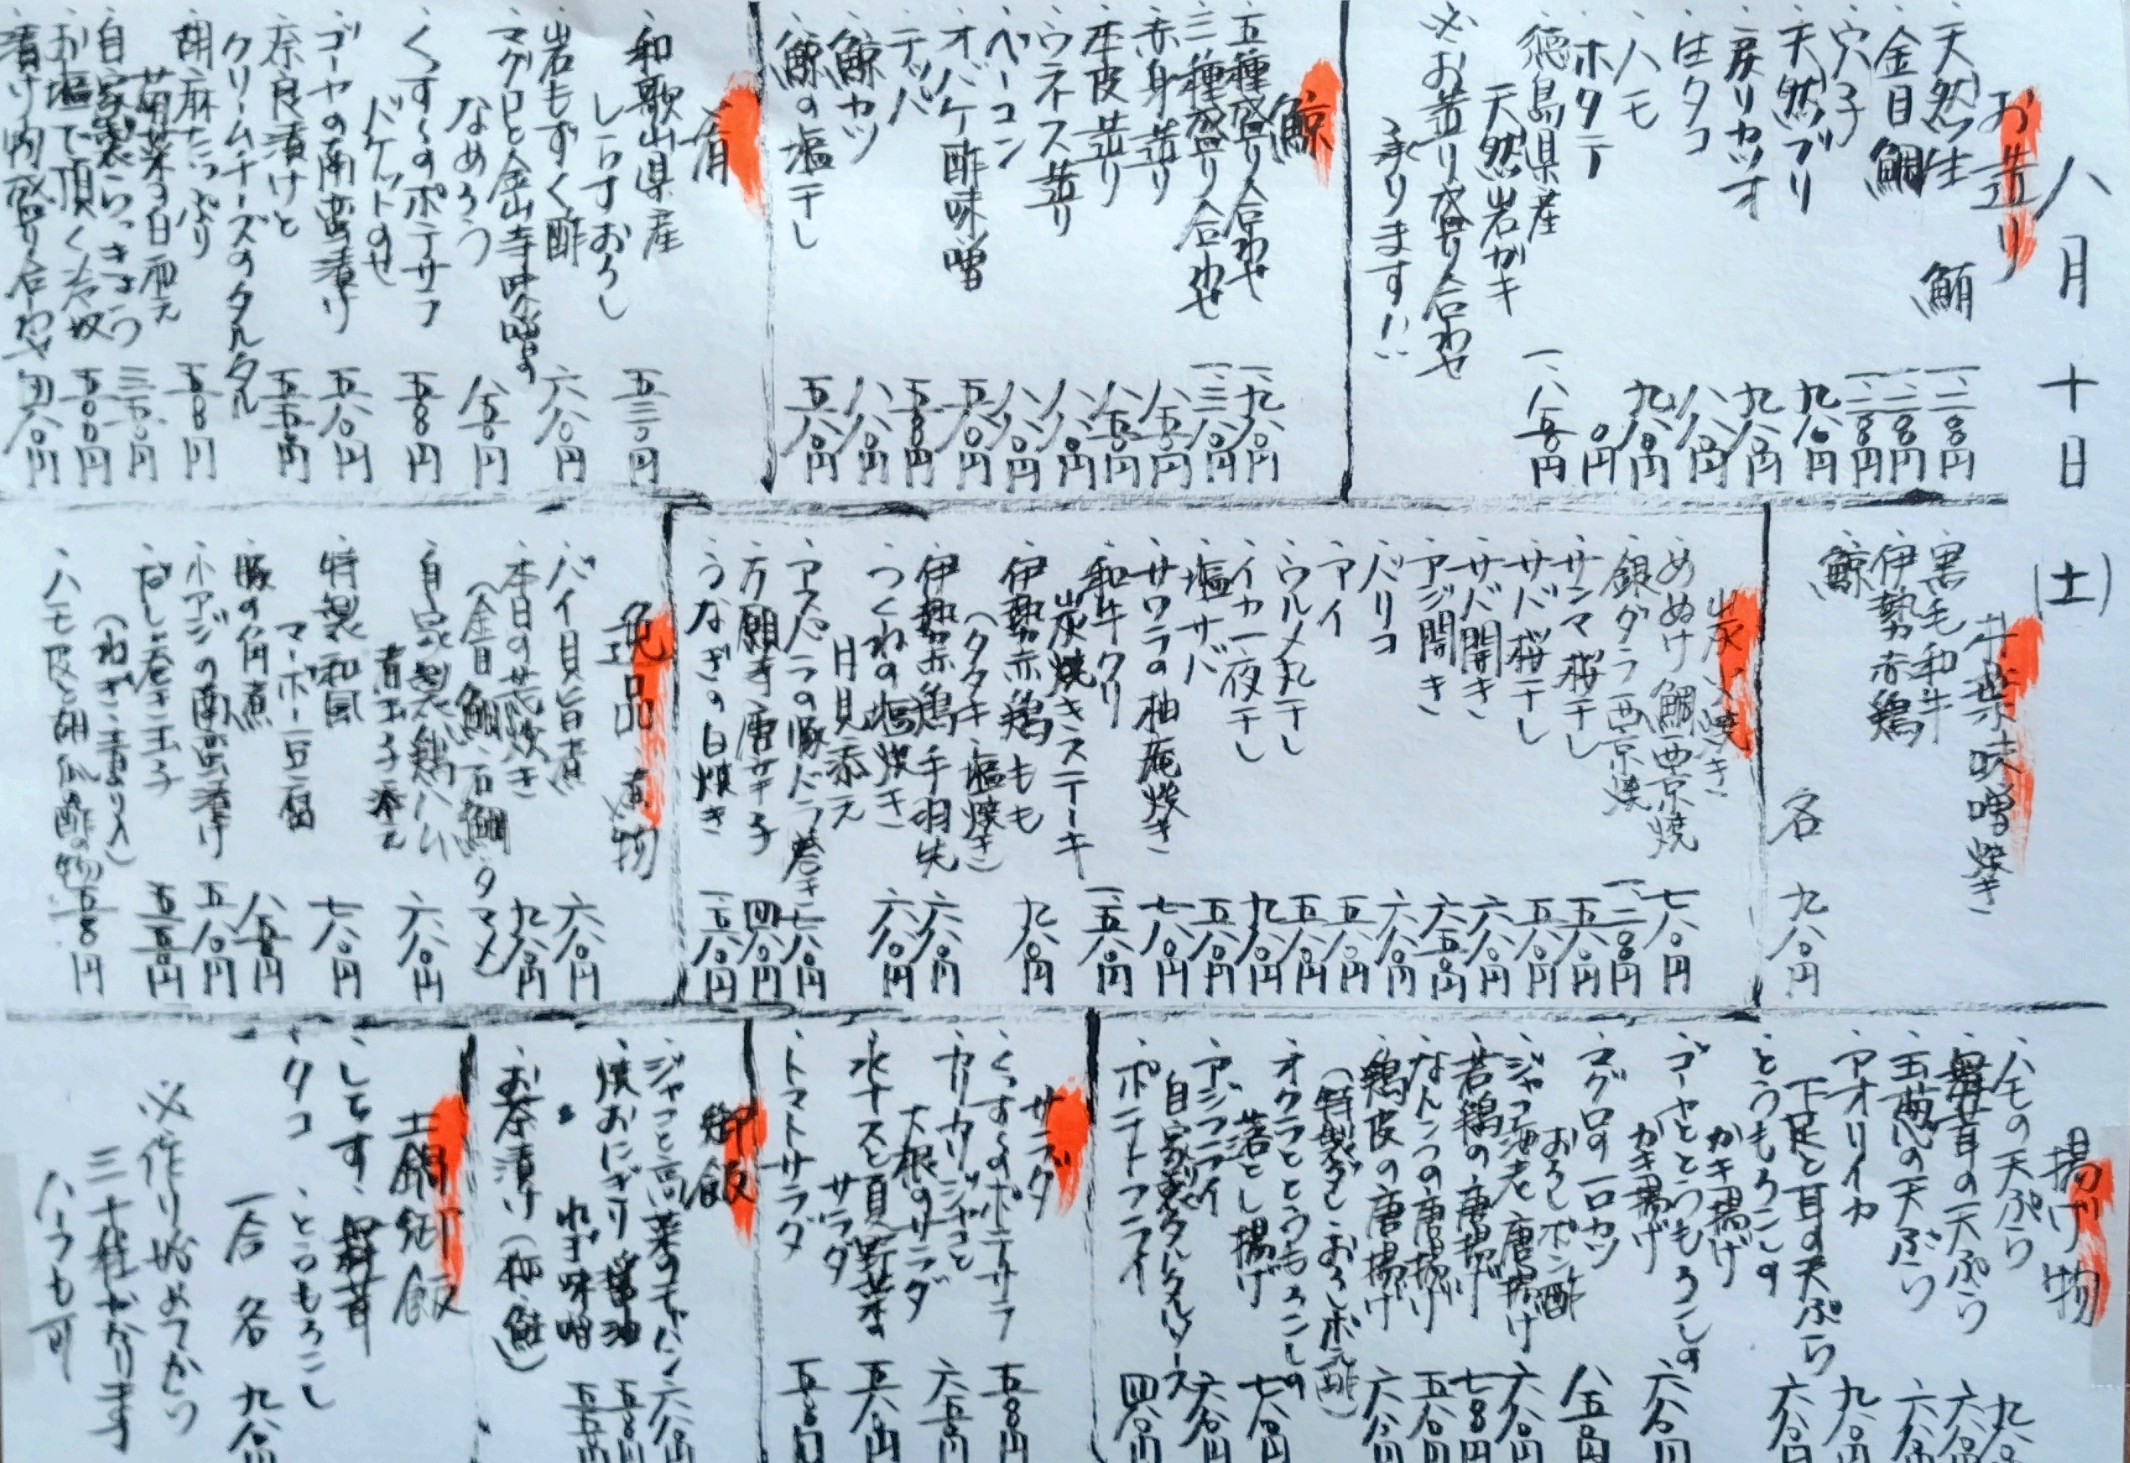 八月十日(土)
お造り
・天然生鮪 一、二〇〇円
・金目鯛 一、二〇〇円
・穴子 一、二〇〇円
・天然ブリ 九八〇円
・戻りカツオ 九八〇円
・生タコ 八八〇円
・ハモ 九八〇円
・ホタテ
・徳島県産
天然岩ガキ 一、八五〇円
※お造り盛り合わせ
承ります!!
鯨
・五種盛り合わせ 一、九八〇円
・三種盛り合わせ 一、三八〇円
・赤身造り 八五〇円
・本皮造り 八五〇円
・ウネス造り 八八〇円
・ベーコン 八八〇円
・オバケ酢味噌 五八〇円
・テッパ 五五〇円
・鯨カツ 八八〇円
・鯨の塩干し 五八〇円
肴
・和歌山県産
しらすおろし 五三〇円
・岩もずく酢 六八〇円
・マグロと金山寺味噌の
なめろう 八五〇円
・くすくすのポテサラ
バケットのせ 五五〇円
・ゴーヤの南蛮漬け 五八〇円
・奈良漬けと
クリームチーズのタルタル 五五〇円
・胡麻たっぷり
菊菜の白和え 五五〇円
・自家製らっきょう 三五〇円
・お塩で頂く冷奴 五〇〇円
・漬け物盛り合わせ 四八〇円
牛葉味噌焼き
・黒毛和牛
・伊勢赤鶏
・鯨
各 九八〇円
炭火焼き
・めぬけ鯛西京焼 七八〇円
・銀ダラ西京焼 一、二〇〇円
・サンマ桜干し 五八〇円
・サバ桜干し 五八〇円
・サバ開き 六八〇円
・アジ開き 六五〇円
・バリコ 六八〇円
・アイ 五八〇円
・ウルメ丸干し 五八〇円
・イカ一夜干し 九八〇円
・塩サバ 五八〇円
・サワラの柚庵焼き 七八〇円
・和牛クリ
炭焼きステーキ 一、五八〇円
・伊勢赤鶏もも
(タタキ・塩焼き) 九八〇円
・伊勢赤鶏手羽先 六八〇円
・つくねの塩焼き
月見添え 六八〇円
・アスパラの豚バラ巻き 七八〇円
・万願寺唐辛子 四八〇円
・うなぎの白焼き 一、五八〇円
逸品・煮物
・バイ貝旨煮 六八〇円
・本日の荒炊き
(金目鯛・石鯛・タマメ) 九八〇円
・自家製鶏ハム
煮玉子添え 六八〇円
・特製和風
マーボー豆腐 七八〇円
・豚の角煮 八五〇円
・小アジの南蛮漬け 五八〇円
・だし巻き玉子
(ねぎ・青より入) 五五〇円
・ハモ皮と胡瓜酢の物 五五〇円
揚げ物
・ハモの天ぷら
・舞茸の天ぷら
・玉葱の天ぷら
・アオリイカ
下足と耳の天ぷら
・とうもろこしの
かき揚げ
・ゴーヤととうもろこしの
かき揚げ
・マグロの一口カツ
おろしポン酢
・ジャコ海老唐揚げ
・若鶏の唐揚げ
・なんこつの唐揚げ
・鶏皮の唐揚げ
(特製だし・おろしポン酢)
・オクラととうもろこしの
落とし揚げ
・アジフライ
自家製タルタルソース
・ポテトフライ
サラダ
・くすくすのポテサラ
・カリカリジャコと
大根のサラダ
・水ナスと夏野菜の
サラダ
・トマトサラダ
御飯
・ジャコと高菜のチャーハン
・焼おにぎり 醤油
ねぎ味噌
・お茶漬け(梅・鮭)
土鍋御飯
・しらす・舞茸
・タコ・とうもろこし
一合 各 九八〇円
※作り始めてから
三十程かかります
ハーフも可